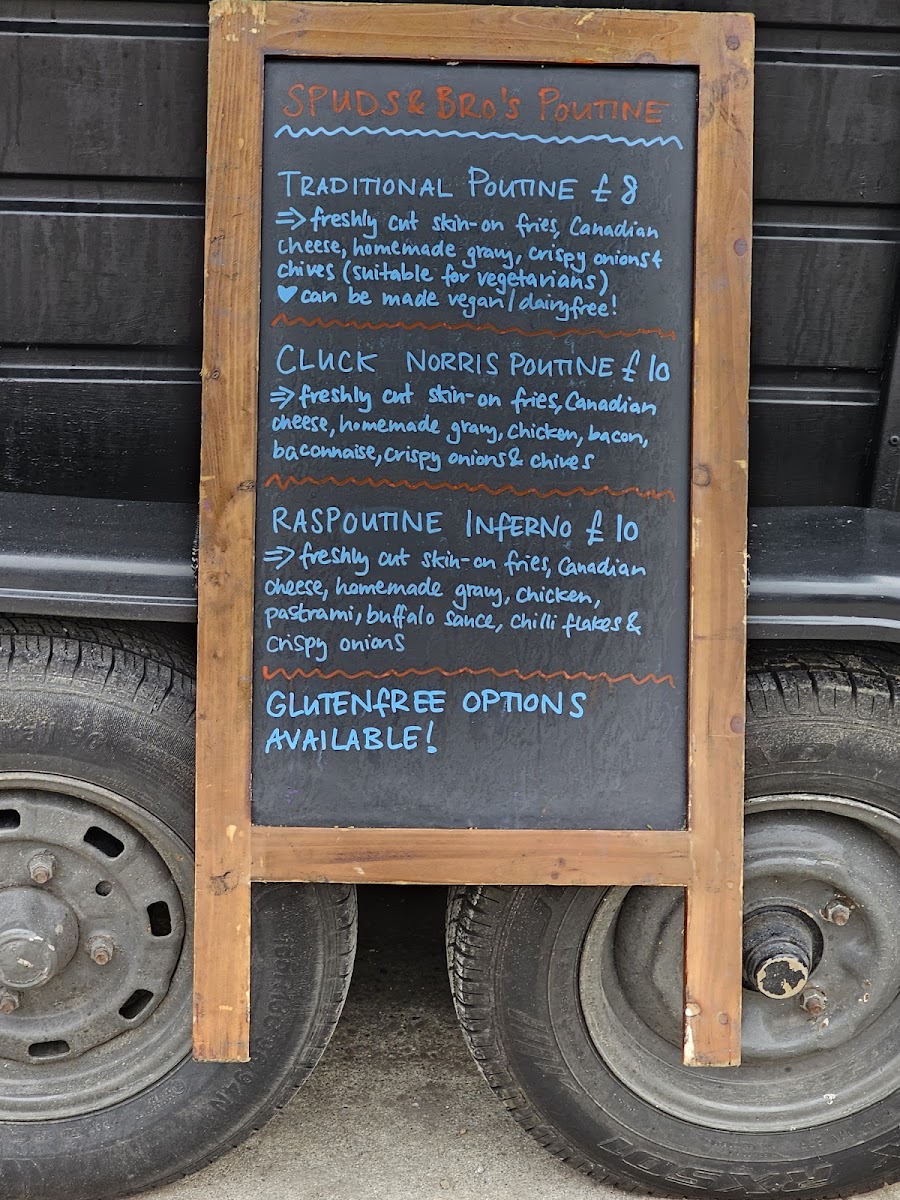 SPUDS & BRO'S POUTINE
TRADITIONAL POUTINE £8
⇒ freshly cut skin-on fries, Canadian
cheese, homemade gravy, crispy onions &
chives (suitable for vegetarians)
♥ can be made vegan/dairyfree!
CLUCK NORRIS POUTINE £10
⇒ freshly cut skin-on fries, Canadian
cheese, homemade gravy, chicken, bacon,
baconnaise, crispy onions & chives
RASPOUTINE INFERNO £10
⇒ freshly cut skin-on fries, Canadian
cheese, homemade gravy, chicken,
pastrami, buffalo sauce, chilli flakes &
crispy onions
GLUTENFREE OPTIONS
AVAILABLE!